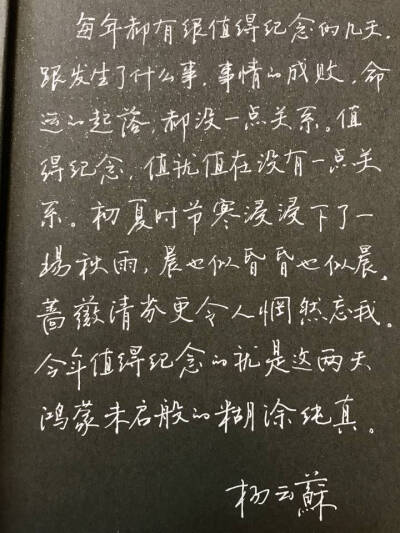 每年都有很值得纪念的几天,
跟发生了什么事,事情的成败,命
运的起落,都没一点关系。值
得纪念,值就值在没有一点关
系。初夏时节寒浸浸下了一
场秋雨,晨也似昏昏也似晨。
蔷薇清芬更令人惘然忘我。
今年值得纪念的就是这两天
鸿蒙未启般的糊涂纯真。
杨云蘇